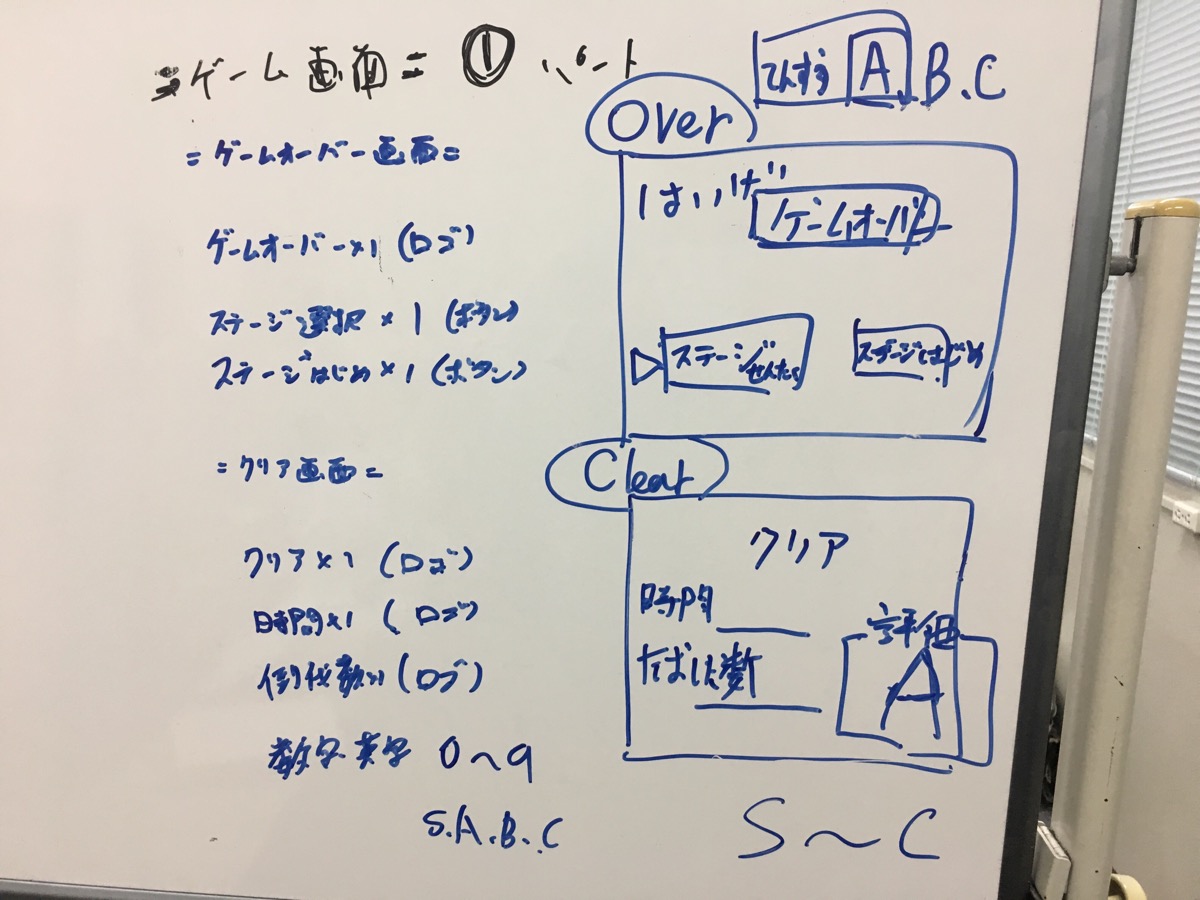 ゲーム画面= ① パート
=ゲームオーバー画面=
ゲームオーバー×1 (ロゴ)
ステージ選択×1 (ボタン)
ステージはじめ×1 (ボタン)
=クリア画面=
クリア×1 (ロゴ)
時間×1 (ロゴ)
倒伐数×1 (ロゴ)
数字・英字 0〜9
S.A.B.C
てんすう A.B.C
Over
はいけい
ゲームオーバー
ステージせんたく
ステージはじめ
Clear
クリア
時間
たおした数
評価
A
S〜C